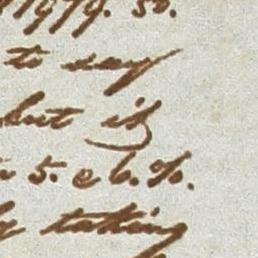 1979. 50.
to say
but if
5. e 6. %.
taking